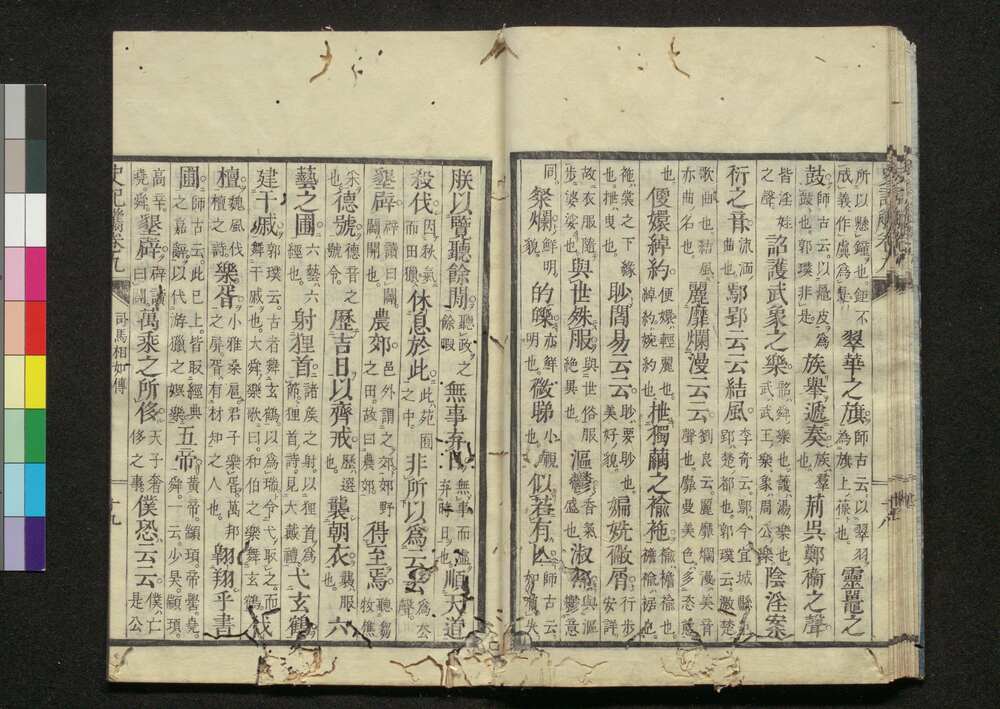 所以懸鐘也鐘不成義作虡為是翠華之旗師古云以翠羽為旗上葆也靈鼉之
鼓師古云以鼉皮為鼓也郭璞非是族舉遞奏族羣也荊吳鄭衞之聲
皆淫娃之聲韶護武象之樂韶舜樂也護湯樂也武武王樂象周公樂陰淫案
衍之音流湎曲也鄢郢云云結風李奇云鄢今宜城縣也郢楚都也郭璞云激楚
歌曲也結風亦曲名也麗靡爛漫云云劉良云麗靡爛漫美音聲也靡曼美色多恣態
也便嬛綽約便嬛輕麗也綽約婉約也抴獨繭之褕袘褕襜褕也襜褕裾也
袘裳之下緣也抴曳也眇閻易云云眇要眇也美好貌媥姺徶㣯行步安詳
故衣服隨步婆娑也與世殊服與世俗服絕異也漚鬱香氣盛也淑郁與漚鬱意
同粲爛鮮明貌的皪明也微睇小視貌似若有亾師古云如有失
朕以覽聽餘間聽政之餘暇無事弃日無事而虛弃時日也順天道
殺伐因秋氣而田獵休息於此此苑囿之中非所以為云云為去聲
墾辟辟讀曰闢闢開也農郊邑外謂之郊郊野之田故曰農郊得至焉聽芻牧樵
采也德號德音之號令歷吉日以齊戒歷選也襲朝衣襲服也六
藝之囿六藝六經也射貍首諸矦之射以貍首為節貍首詩見大戴禮弋玄鶴
建干戚郭璞云古者舞玄鶴以為瑞令弋取之而舞干戚也大舜樂歌曰和伯之樂舞玄鶴伐
檀魏風伐檀之詩樂胥小雅桑扈君子樂胥萬邦之屏胥有材知之人也翱翔乎書
圃師古云此已上皆取經典之嘉辭以代游獵之娛樂五帝黃帝顓頊帝嚳堯舜一云少昊顓頊
高辛堯舜墾辟辟讀曰闢萬乘之所侈天子奢侈之事僕恐云云僕亡是公
史記觿卷九 司馬相如傳 十九